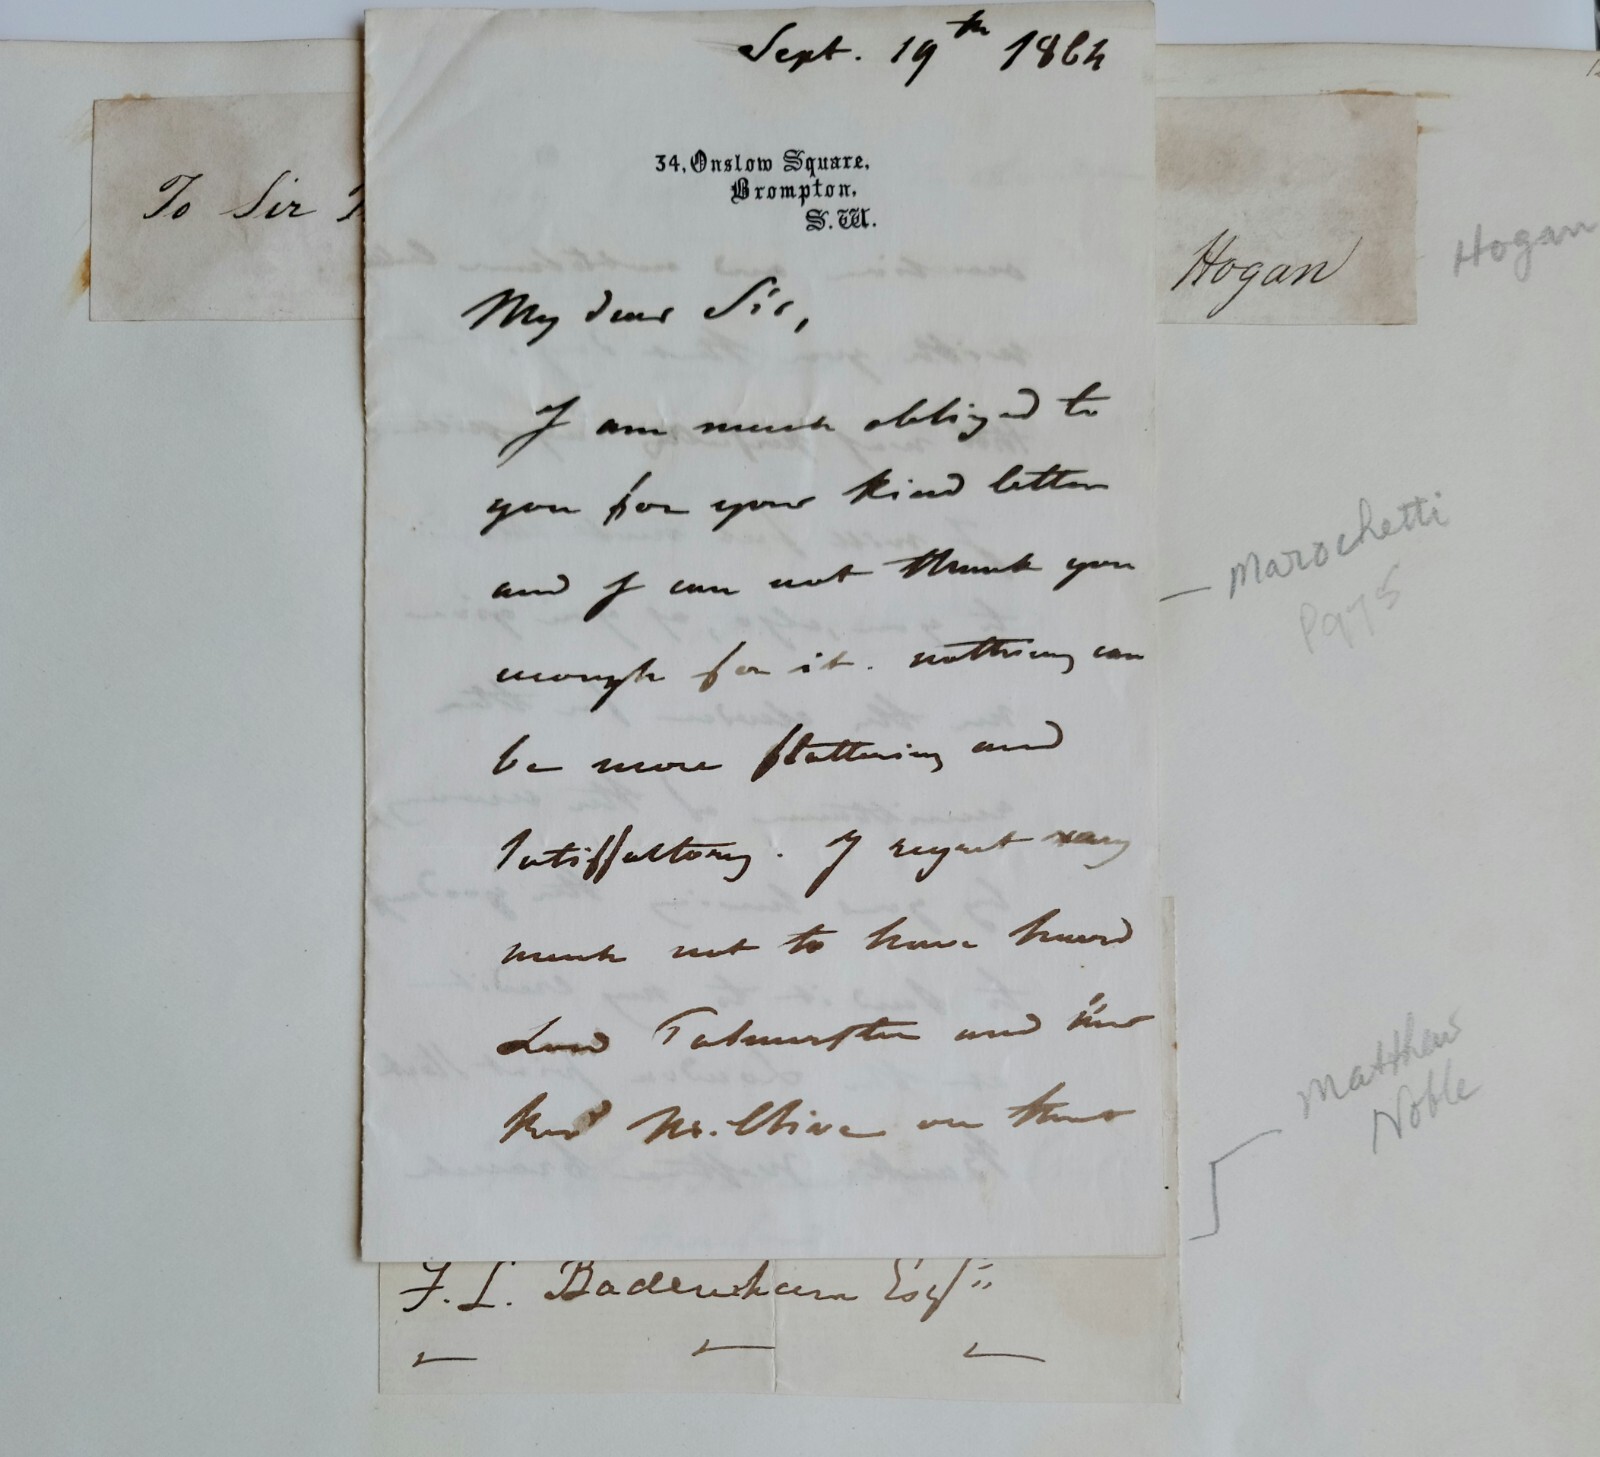 Sept. 19th 1864
34, Onslow Square,
Brompton,
S.W.
To Sir
Hogan
Hogan
My dear Sir,
I am much obliged to
you for your kind letter
and I can not thank you
enough for it. nothing can
be more flattering and
satisffactory. I regret very
much not to have heard
Lord Palmerston and
Mr. Clive on that
Marochetti
Matthew
Noble
F. L. Bodenham Esqre